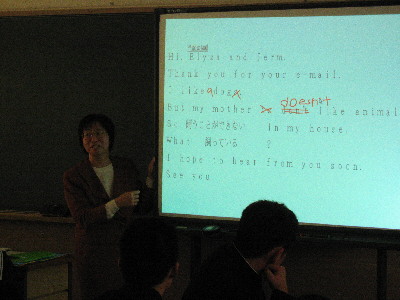 Hi, Elysa and Term.
Thank you for your e-mail.
I like dogs.
But my mother doesn't like animal
So 飼うことができない in my house.
What 飼っている ?
I hope to hear from you soon.
See you